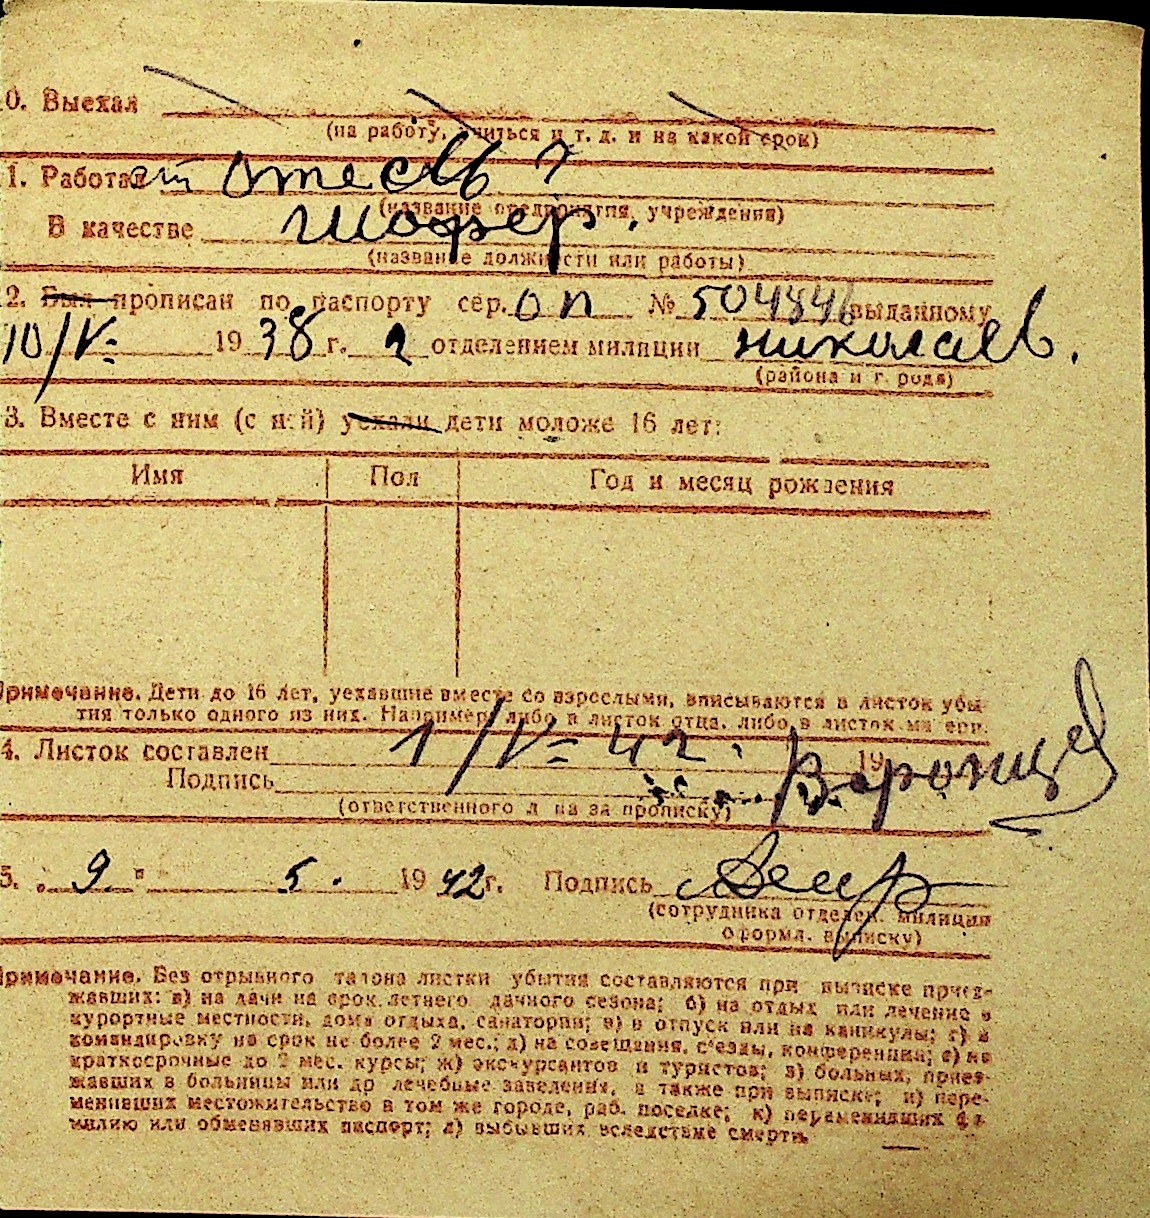 0. Выехал
(на работу, учиться и т. д. и на какой срок)
1. Работал
(название предприятия, учреждения)
В качестве шофер.
(название должности или работы)
2. Был прописан по паспорту сер. ОП № 504846 выданному
10/V- 1938 г. 2 отделением милиции николаев.
(района и города)
3. Вместе с ним (с ней) уехали дети моложе 16 лет:
Имя Пол Год и месяц рождения
Примечание. Дети до 16 лет, уехавшие вместе со взрослыми, вписываются в листок убы-
тия только одного из них. Например, либо в листок отца, либо в листок матери.
4. Листок составлен 1/V- 42. 19
Подпись Воронцов
(ответственного лица за прописку)
5. „ 9. " 5. 1942 г. Подпись
(сотрудника отделен. милиции
оформл. выписку)
Примечание. Без отрывного талона листки убытия составляются при выписке приез-
жавших: а) на дачи на срок летнего дачного сезона; б) на отдых или лечение в
курортные местности, дома отдыха, санатории; в) в отпуск или на каникулы; г) в
командировку на срок не более 2 мес.; д) на совещания, съезды, конференции; е) на
краткосрочные до 2 мес. курсы; ж) экскурсантов и туристов; з) больных, приез-
жавших в больницы или др лечебные заведения, а также при выписке; и) пере-
менивших местожительство в том же городе, раб. поселке; к) переменивших фа-
милию или обменявших паспорт; л) выбывших вследствие смерти.